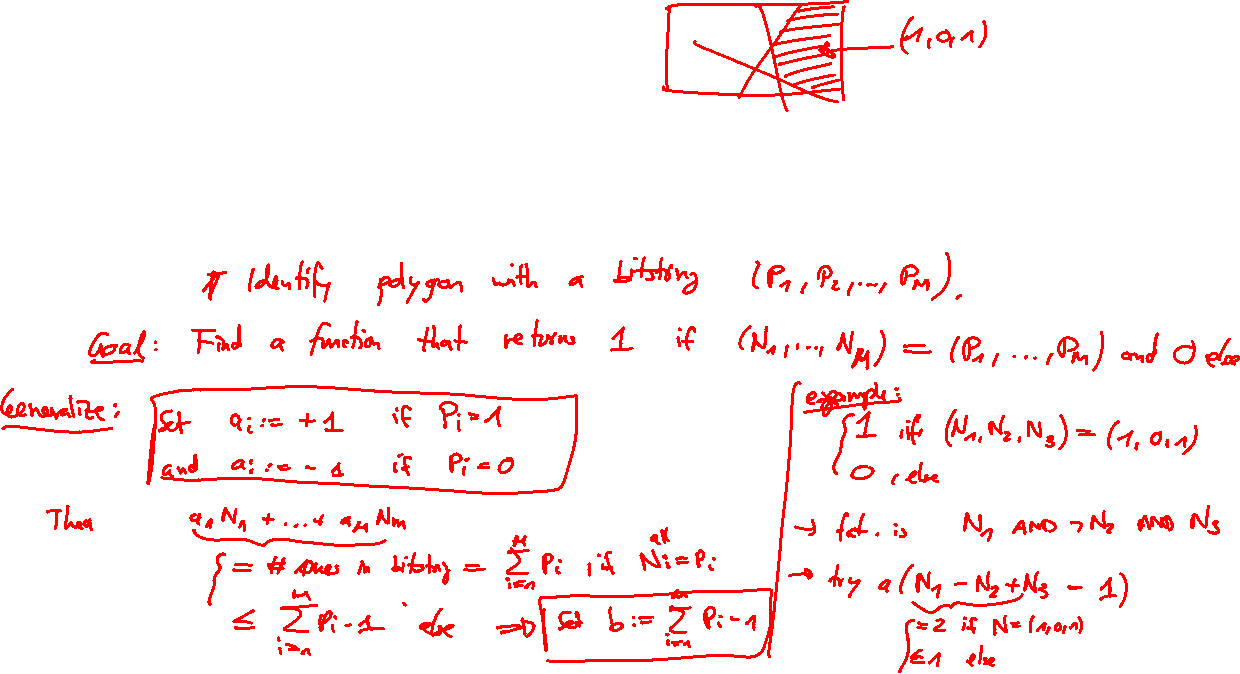 (1,0,1)
Identify polygon with a bitstring (P₁, P₂, ..., P_M).
Goal: Find a function that returns 1 if (N₁, ..., N_M) = (P₁, ..., P_M) and 0 else
Generalize:
Set aᵢ := +1 if Pᵢ=1
and aᵢ := -1 if Pᵢ=0
Then a₁N₁ + ... + a_M N_m
= # ones in bitstring = ∑_{i=1}^{M} Pᵢ , if all Nᵢ=Pᵢ
≤ ∑_{i=1}^{M} Pᵢ-1 else ⇒ Set b := ∑_{i=1}^{M} Pᵢ-1
example:
1 , if (N₁, N₂, N₃) = (1,0,1)
0 , else
→ fct. is N₁ AND ¬N₂ AND N₃
→ try a(N₁ - N₂ + N₃ - 1)
=2 if N=(1,0,1)
≤1 else